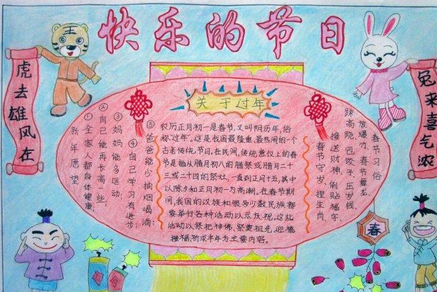 快乐的节日
虎去雄风在
兔来喜气浓
关于过年
农历正月初一是春节,又叫阴历年,俗
称"过年"。这是我国最隆重、最热闹的一个
古老传统节日。在民间,传统意义上的春
节是指从腊月初八的腊祭或腊月二十
三或二十四的祭灶,一直到正月十五,其中
以除夕和正月初一为高潮。在春节期
间,我国的汉族和很多少数民族都
要举行各种活动以示庆祝。这些
活动以祭祀神佛、祭奠祖先、迎禧
接福、祈求丰年为主要内容。
新年愿望
①全家人都身体健康。
②自己能再长高些。
③妈妈能多运动。
④自己学习有进步。
⑤爸爸能少抽烟喝酒。
春节习俗
放爆竹、
春节习俗挂生肖,
春